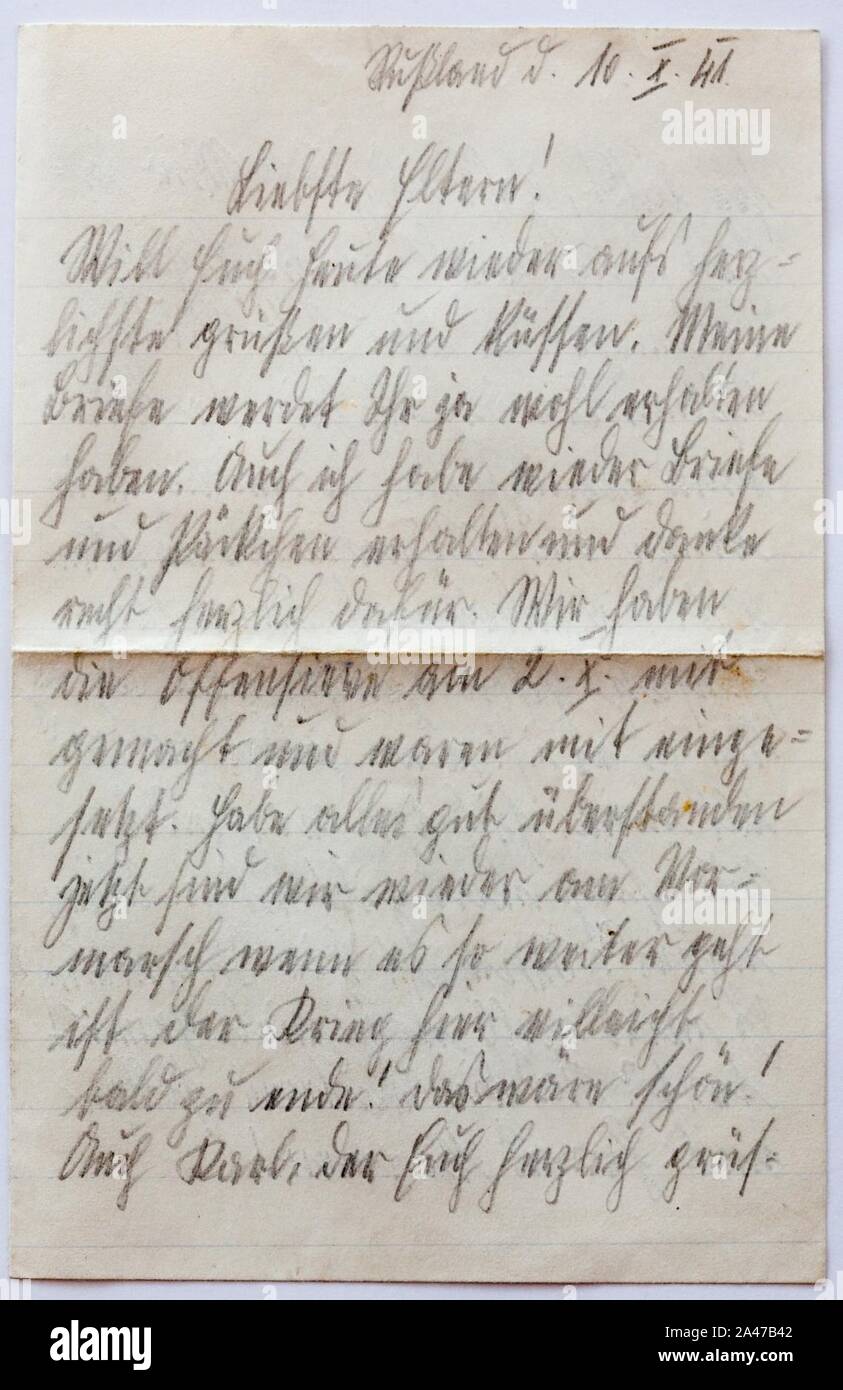 Rußland d. 10. X. 41.
Liebste Eltern!
Will Euch heute wieder aufs herz=
lichste grüßen und Küssen. Meine
Briefe werdet Ihr ja wohl erhalten
haben. Auch ich habe wieder Briefe
und Päckchen erhalten und danke
recht herzlich dafür. Wir haben
die Offensieve am 2. X. mit
gemacht und waren mit einge=
setzt. Habe alles gut überstanden
jetzt sind wir wieder am Vor=
marsch wenn es so weiter geht
ist der Krieg hier villeicht
bald zu ende! Das wäre schön!
Auch Karl, der Euch herzlich grüs=
alamy
Image ID: 2A47B42
www.alamy.com